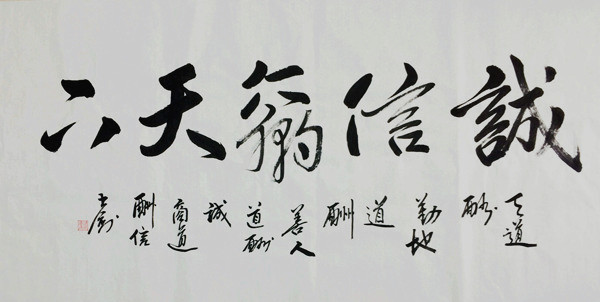 誠信贏天下
天道
酬
勤地
道
酬
善人
道酬
誠
商道
酬信